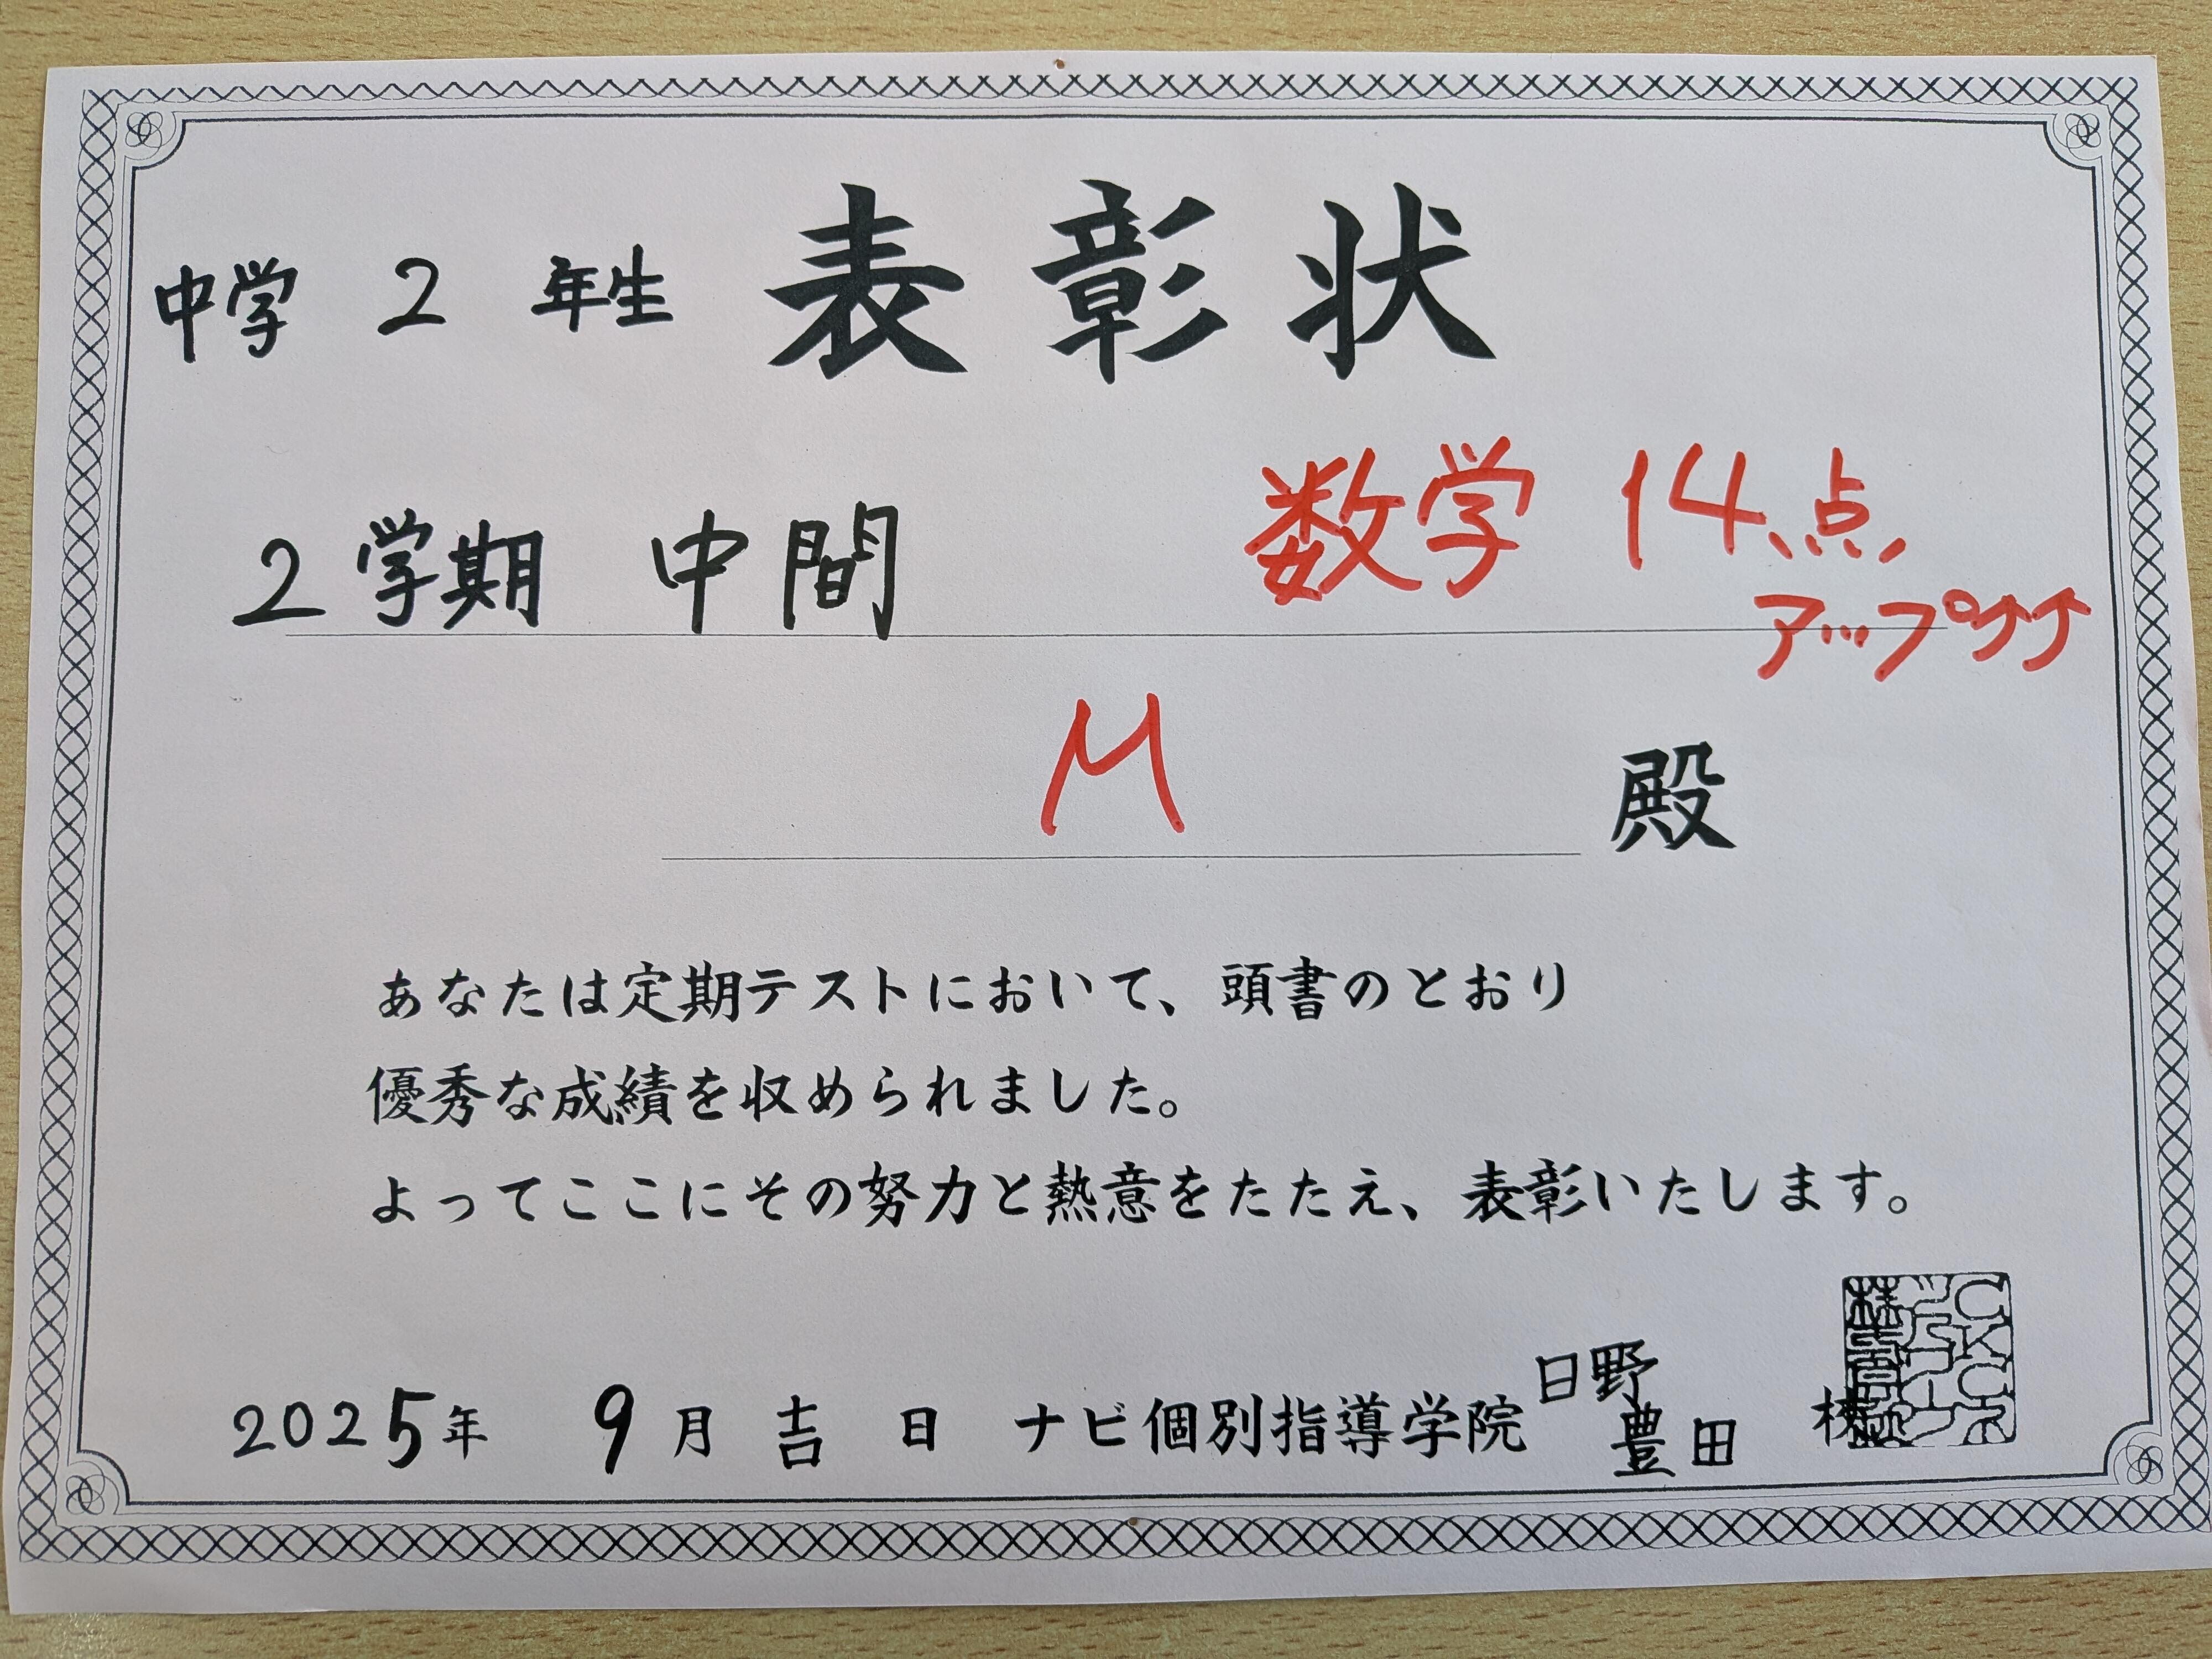 中学 2 年生 表彰状
2学期 中間 数学 14点
アップ↑↑
M 殿
あなたは定期テストにおいて、頭書のとおり
優秀な成績を収められました。
よってここにその努力と熱意をたたえ、表彰いたします。
2025年 9月 吉 日 ナビ個別指導学院 日野
豊田 校